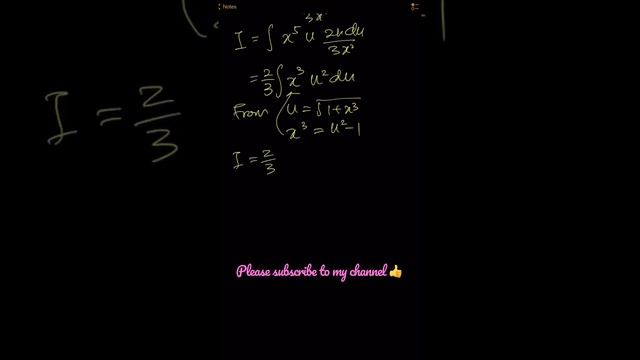 Notes
3x
I = ∫ x⁵ u 2udu/3x²
= 2/3 ∫ x³ u² du
From u = √1+x³
x³ = u²-1
I = 2/3
I = 2/3
Please subscribe to my channel 👍